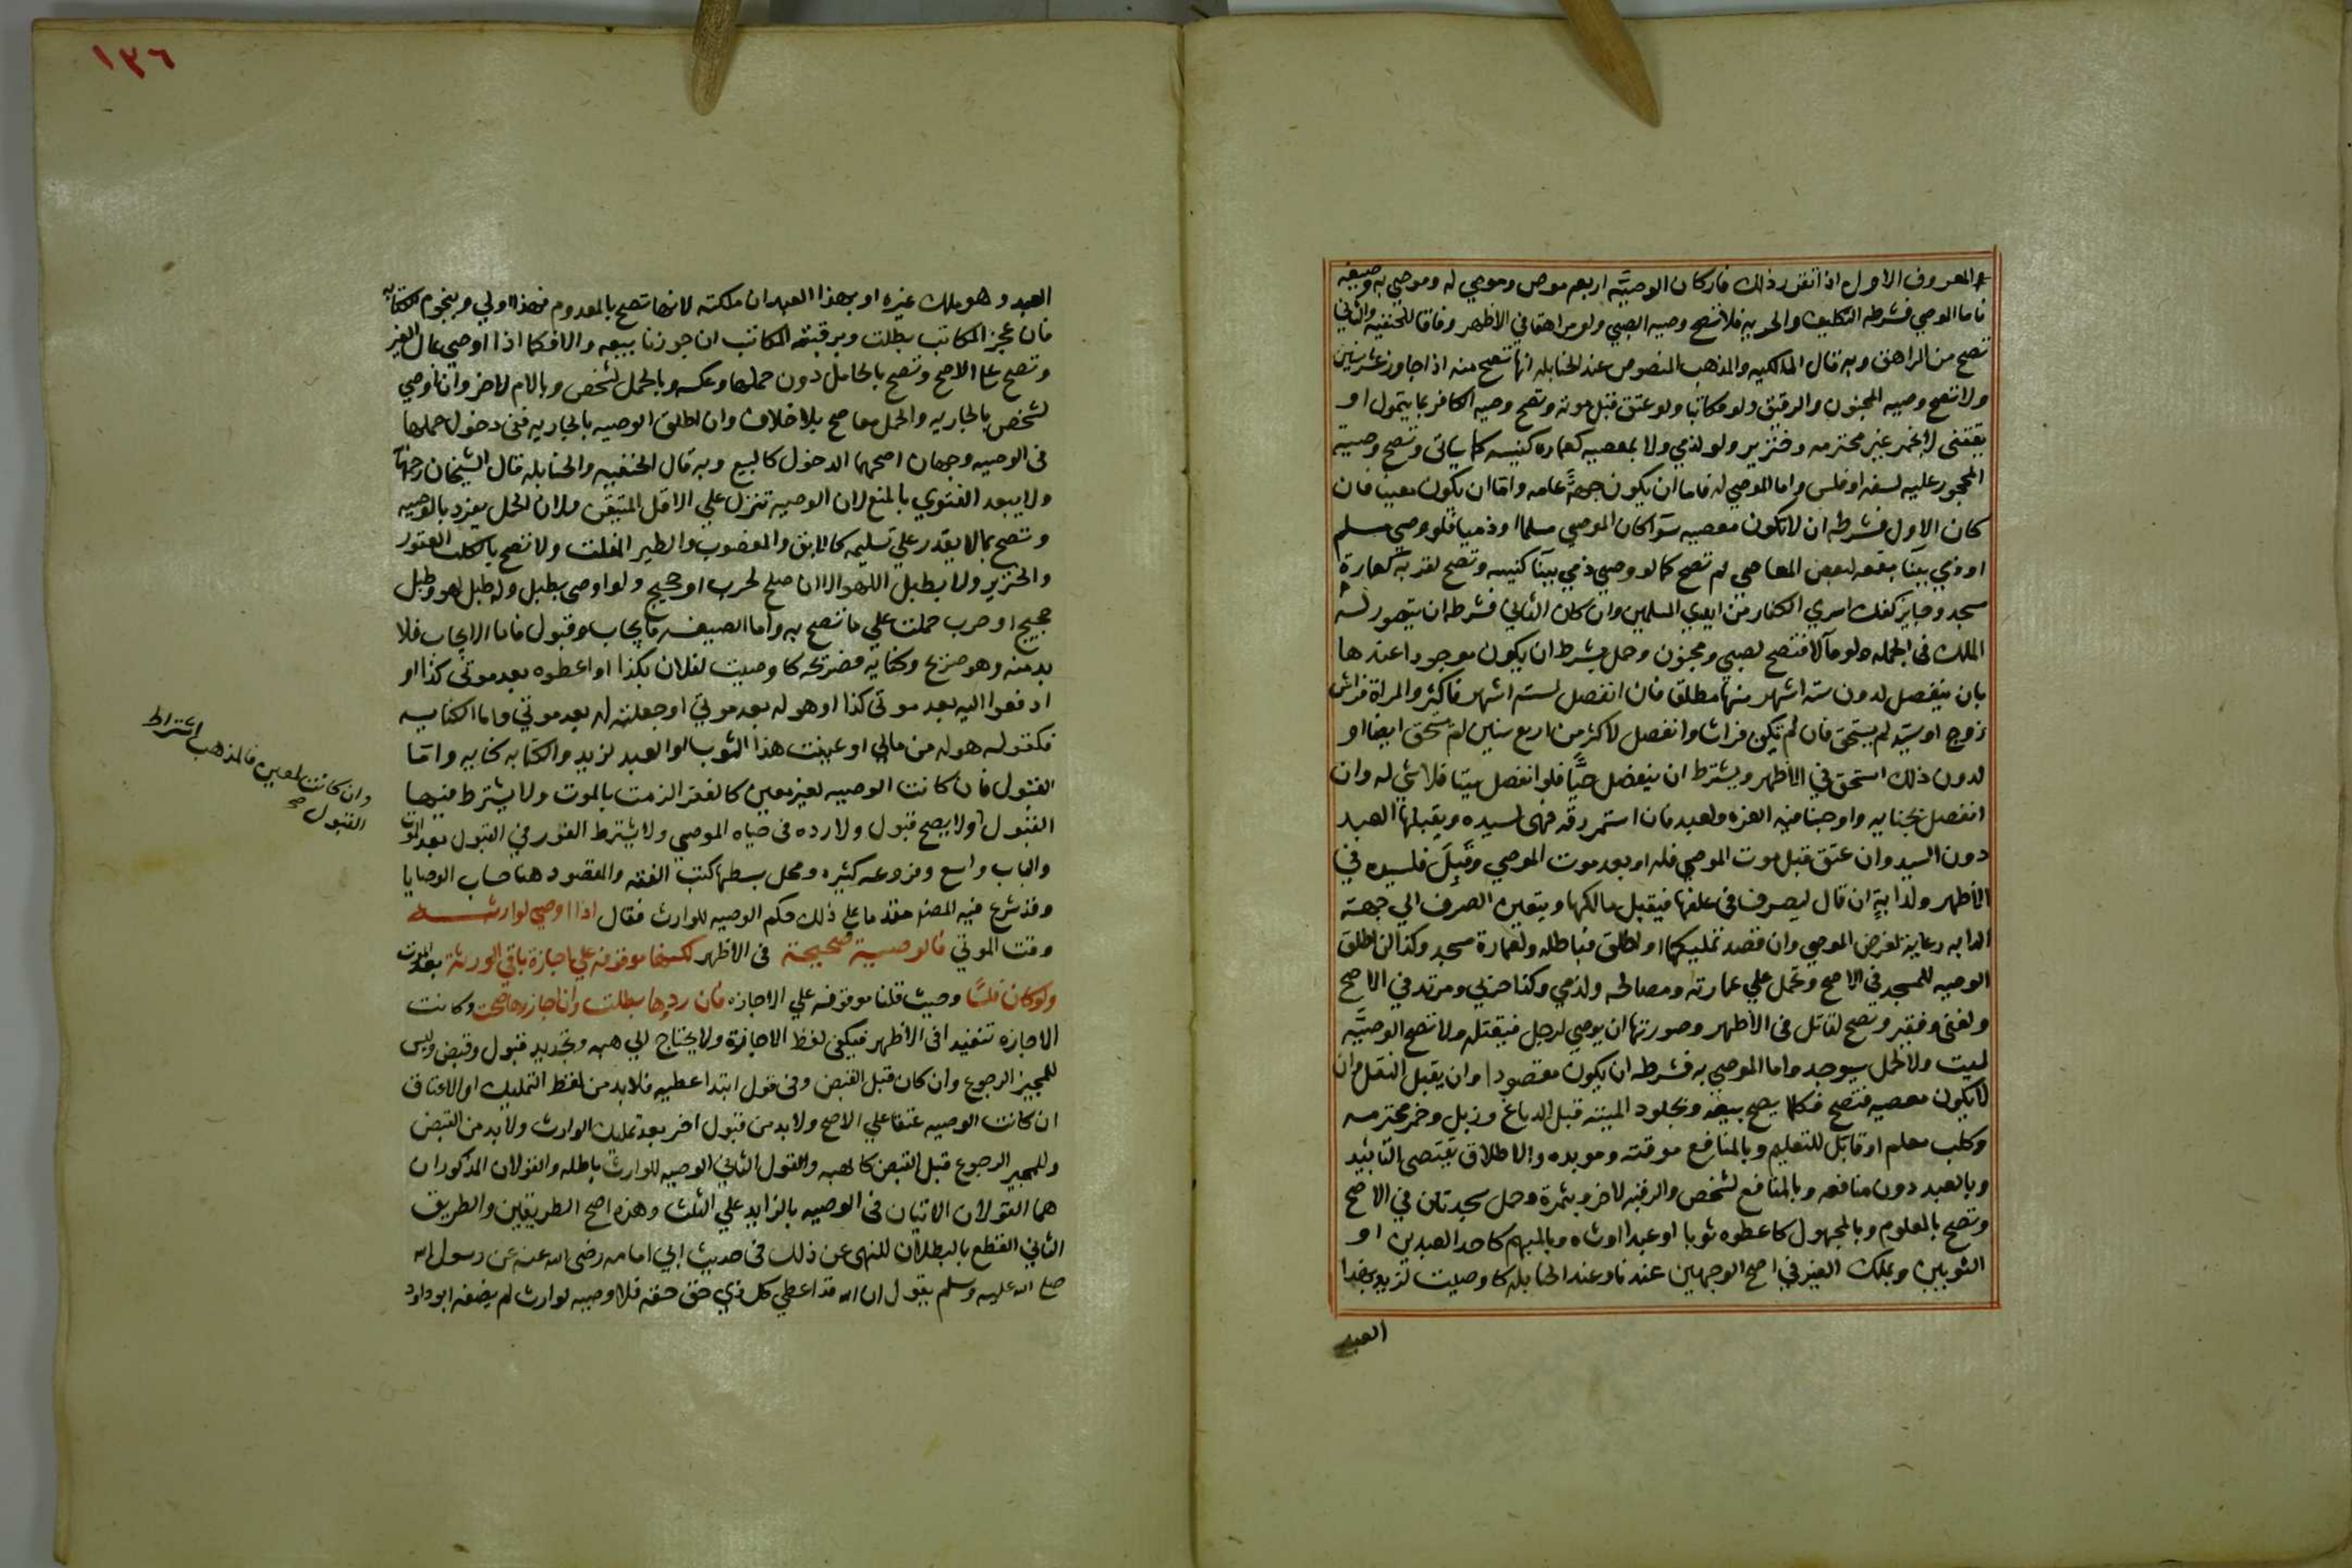 والمعروف الاول اذا تقرر ذلك فاركان الوصيه اربعه موص وموصي له وموصي به وصيغه
فاما الموصي فشرطه التكليف والحريه فلا تصح وصيه الصبي ولو مراهقا في الاظهر وفاقا للحنفيه والثاني
تصح من المراهق وبه قال المالكيه والمذهب المنصوص عند الحنابله انها تصح منه اذا جاوز عشر سنين
ولا تصح وصيه المجنون والرقيق ولو مكاتبا ولو عتق قبل موته وتصح وصيه الكافر بما يتمول او
يقتني لا بخمر غير محترمه وخنزير ولو لذمي ولا بمعصيه كعماره كنيسه كما ياتي وتصح وصية
المحجور عليه لسفه او فلس واما الموصي له فاما ان يكون جهةً عامه واما ان يكون معينا فان
كان الاول فشرطه ان لا تكون معصيه سوآ كان الموصي مسلما او ذميا فلو وصي مسلم
او ذمي ببنآ بقعه لبعض المعاصي لم تصح كما لو وصي ذمي ببنآ كنيسه وتصح لقربه كعمارة
مسجد وجايز كفك اسري الكفار من ايدي المسلمين وان كان الثاني فشرطه ان يتصور له
الملك في الجمله ولو مآلا فتصح لصبي ومجنون وحمل بشرط ان يكون موجودا عندها
بان ينفصل لدون سته اشهر منها مطلقا فان انفصل لسته اشهر فاكثر والمراة فراش
زوج او سيد لم يستحق فان لم تكن فراشا وانفصل لاكثر من اربع سنين لم يستحق ايضا او
لدون ذلك استحق في الاظهر ويشترط ان ينفصل حيًّا فلو انفصل ميتا فلا شي له وان
انفصل بجنايه واوجبنا فيه الغره ولعبد فان استمر رقه فهي لسيده ويقبلها العبد
دون السيد وان عتق قبل موت الموصي فله او بعد موت الموصي وقَبِلَ فلسيده في
الاظهر ولدابةٍ ان قال ليصرف في علفها فيقبل مالكها ويتعين الصرف الي جهة
الدابه رعاية لغرض الموصي وان قصد تمليكها او اطلق فباطله ولعمارة مسجد وكذا ان اطلق
الوصيه للمسجد في الاصح وتحمل علي عمارته ومصالحه ولذمي وكذا حربي ومرتد في الاصح
ولغني وفقير ويصح لقاتل في الاظهر وصورتها ان يوصي لرجل فيقتله ولا تصح الوصيّه
لميت ولا لحمل سيوجد واما الموصي به فشرطه ان يكون مقصودا وان يقبل النقل وان
لا يكون معصيه فتصح فكلما يصح بيعه وبجلود الميته قبل الدباغ وزبل وخمر محترمه
وكلب معلم او قابل للتعليم وبالمنافع موقته وموبده والاطلاق يقتضي التابيد
وبالعبد دون منافعه وبالمنافع لشخص والرقبه لاخر وبثمرة وحمل سيحدثان في الاصح
وتصح بالمعلوم وبالمجهول كاعطوه ثوبا او عبدا او شاه وبالمبهم كاحد العبدين او
الثوبين وبملك الغير في اصح الوجهين عندنا وعند الحنابله كاوصيت لزيد بهذا
العبد
١٣٦
العبد وهو ملك غيره او بهذا العبد ان ملكته لانها تصح بالمعدوم فهذا اولي وبنجوم الكتابه
فان عجز المكاتب بطلت وبرقبة المكاتب ان جوزنا بيعه والا فكما اذا اوصي بمال الغير
وتصح علي الاصح وتصح بالحامل دون حملها وعكسه وبالحمل لشخص وبالام لاخر وان اوصي
لشخص بالجاريه والحمل معا صح بلا خلاف وان اطلق الوصيه بالجاريه ففي دخول حملها
في الوصيه وجهان اصحهما الدخول كالبيع وبه قال الحنفيه والحنابله قال الشيخان
ولا يبعد الفتوي بالمنع لان الوصيه تنزل علي الاقل المتيقن ولان الحمل يفرد بالوصيه
وتصح بما لا يقدر علي تسليمه كالابق والمغصوب والطير المفلت ولا تصح بالكلب العقور
والخنزير ولا بطبل اللهو الا ان صلح لحرب او حجيج ولو اوصي بطبل وله طبل لهو وطبل
حجيج او حرب حملت علي ما تصح به واما الصيغه فايجاب وقبول فاما الايجاب فلا
بد منه وهو صريح وكنايه فصريحه كاوصيت لفلان بكذا او اعطوه بعد موتي كذا او
ادفعوا اليه بعد موتي كذا او هو له بعد موتي او جعلته له بعد موتي واما الكنايه
فكقوله هو له من مالي او عينت هذا الثوب او العبد لزيد والكتابه كنايه واما
القبول فان كانت الوصيه لغير معين كالفقرا لزمت بالموت ولا يشترط فيها
القبول ولا يصح قبول ولا رده في حياه الموصي ولا يشترط الفور في القبول بعد الموت
وان كانت لمعين فالمذهب اشتراط
القبول صح
والباب واسع وفروعه كثيره ومحل بسطها كتب الفقه والمقصود هنا حساب الوصايا
وقد شرع فيه المصنف مقدما علي ذلك حكم الوصيه للوارث فقال اذا اوصي لوارثه
وقت الموت فالوصية صحيحة في الاظهر لكنها موقوفه علي اجازة باقي الورثه بعد الموت
ولو كان ثلثًا وحيث قلنا موقوفه علي الاجازه فان ردوها بطلت وان اجازوها صحت وكانت
الاجازه تنفيذا في الاظهر فيكفي لفظ الاجازة ولا يحتاج الي هبه وتجديد قبول وقبض وليس
للمجيز الرجوع وان كان قبل القبض وفي قول ابتدا عطيه فلا بد من لفظ التمليك او الاعتاق
ان كانت الوصيه عتقا علي الاصح ولا بد من قبول اخر بعد تمليك الوارث ولا بد من القبض
وللمجيز الرجوع قبل القبض كالهبه والقول الثاني الوصيه للوارث باطله والقولان المذكوران
هما القولان الاتيان في الوصيه بالزايد علي الثلث وهذه اصح الطريقين والطريق
الثاني القطع بالبطلان للنهي عن ذلك في حديث ابي امامه رضي الله عنه عن رسول الله
صلي الله عليه وسلم يقول ان الله قد اعطي كل ذي حق حقه فلا وصيه لوارث لم يضعفه ابو داود